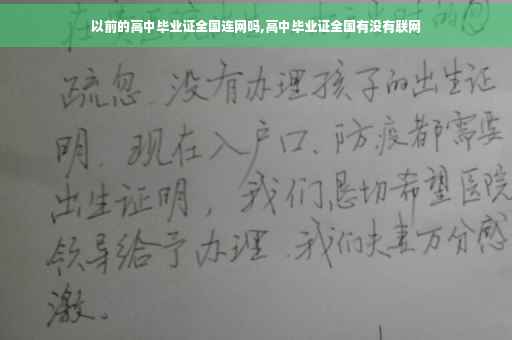 以前的高中毕业证全国连网吗,高中毕业证全国有没有联网
疏忽、没有办理孩子的出生证
明、现在入户口、防疫都需要
出生证明，我们恳切希望医院
领导给予办理、我们夫妻万分感
激。